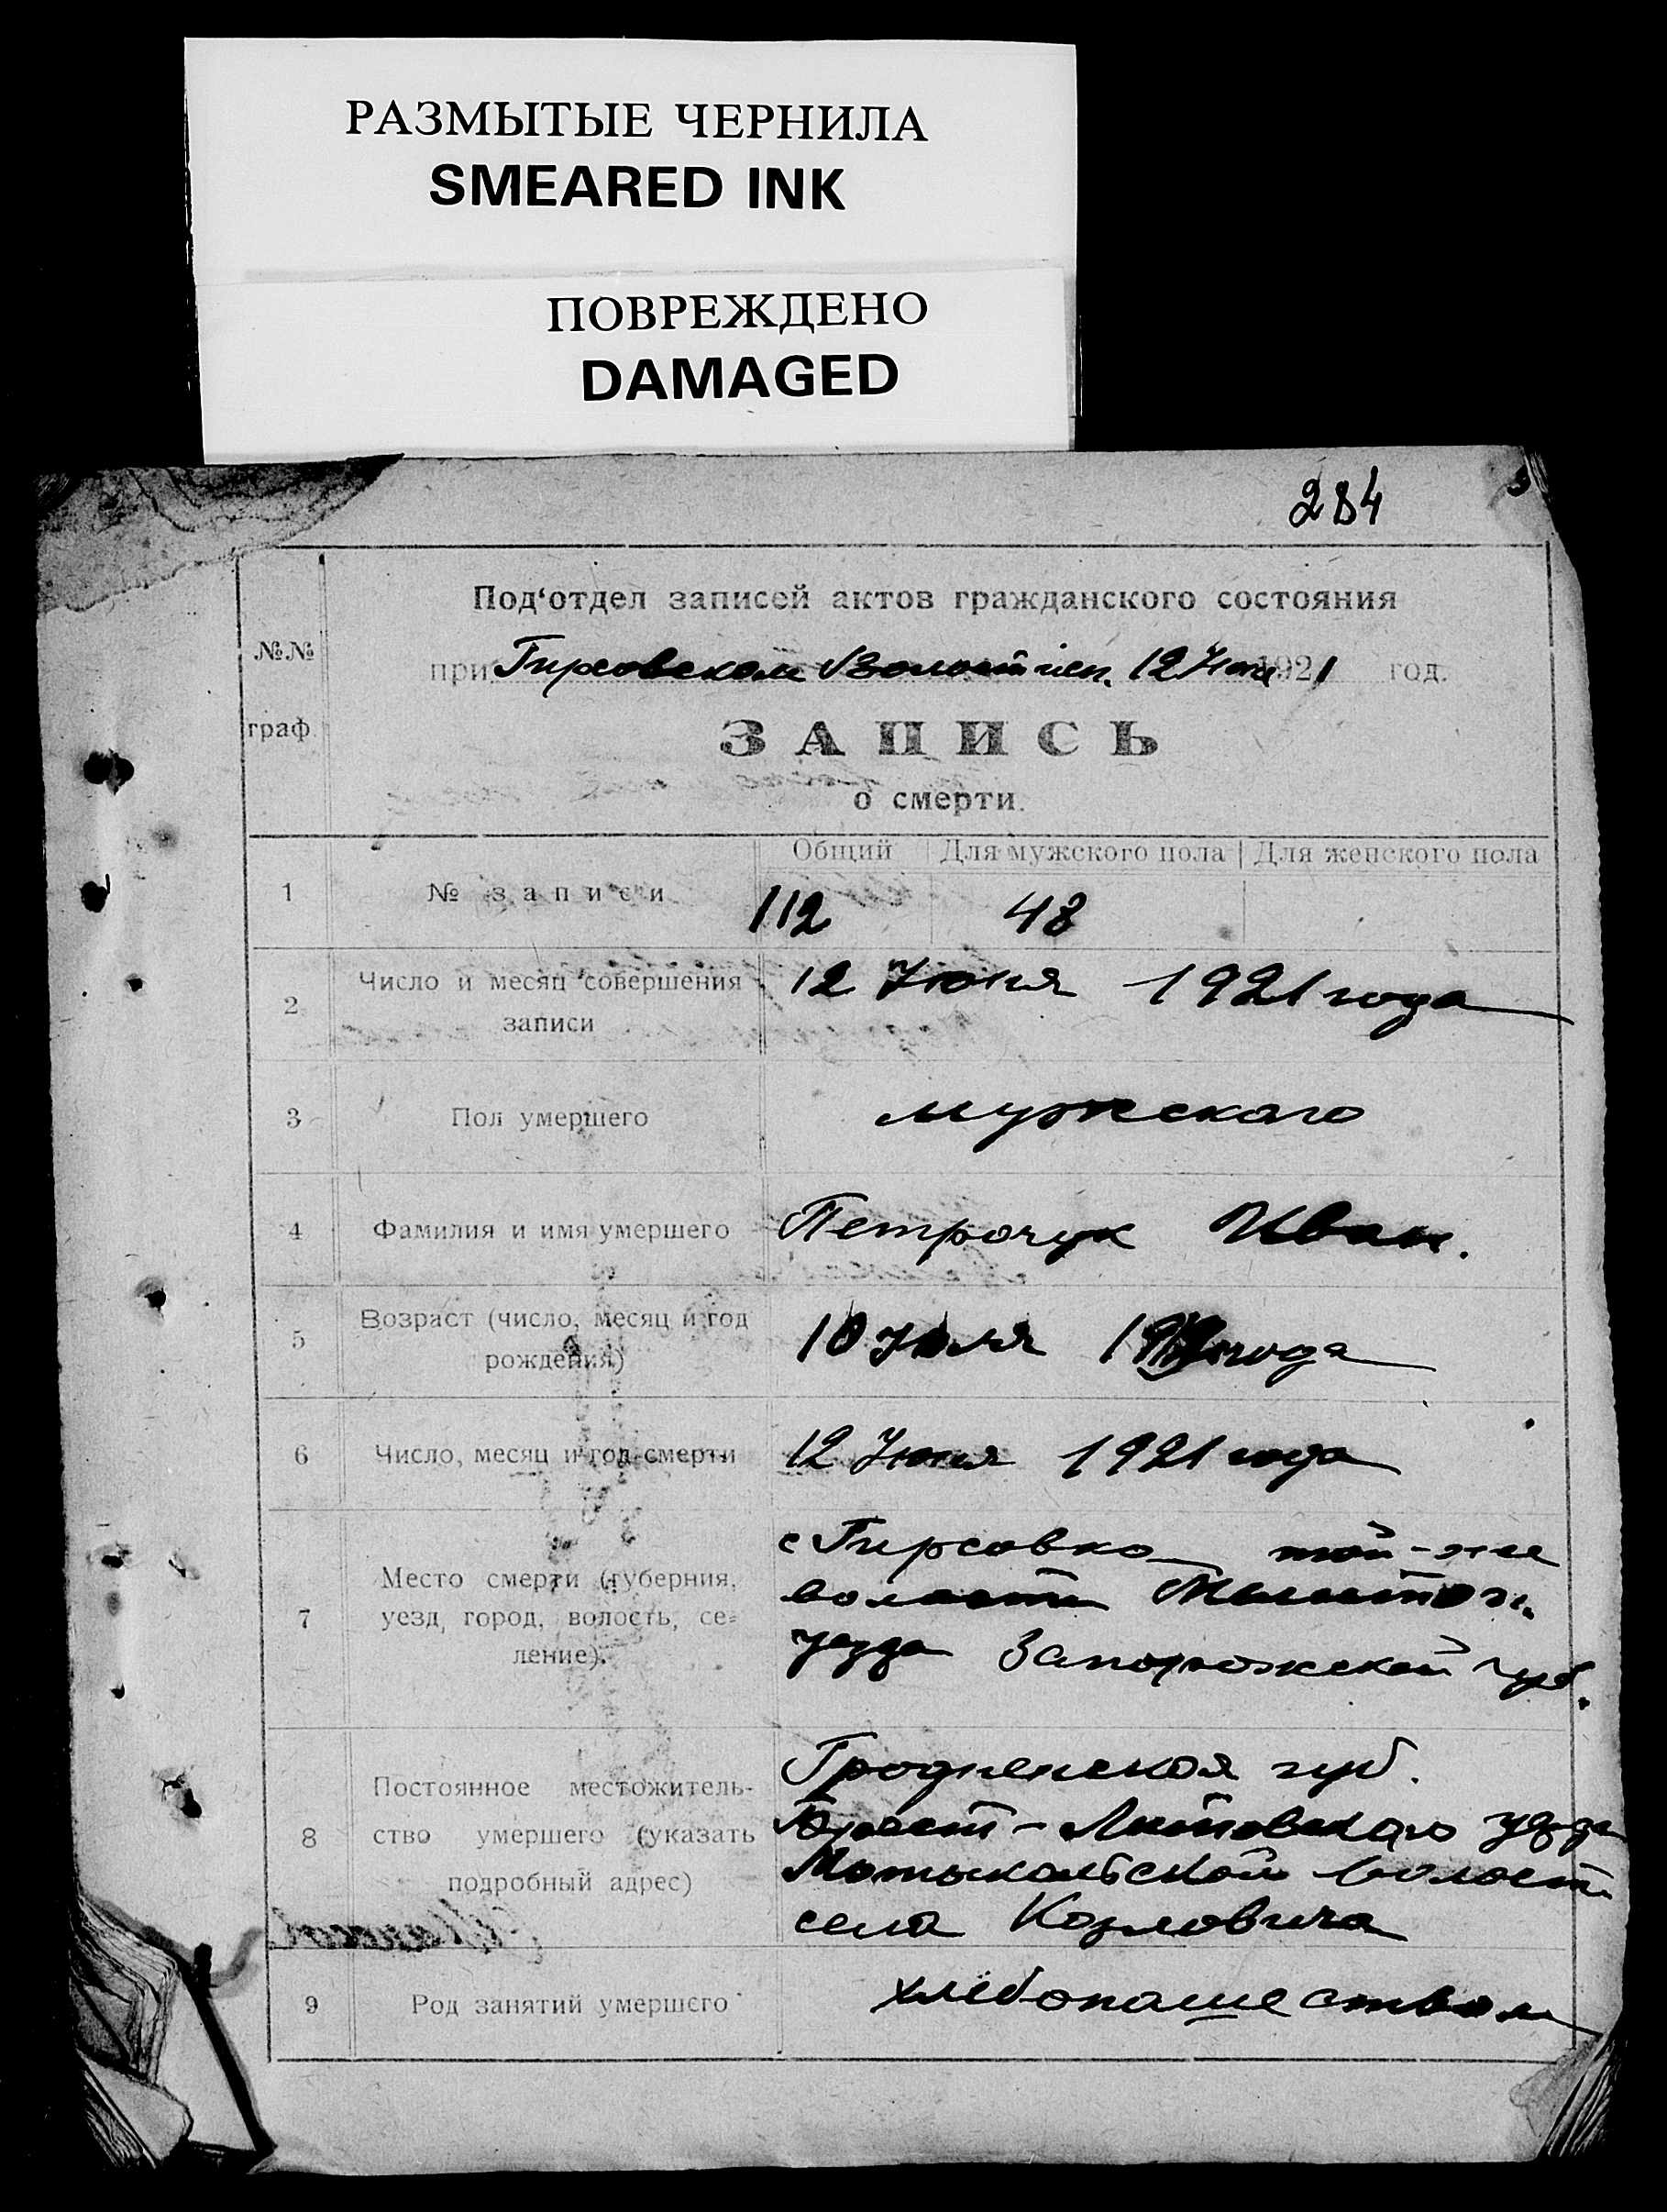 РАЗМЫТЫЕ ЧЕРНИЛА
SMEARED INK
ПОВРЕЖДЕНО
DAMAGED
284
Под‘отдел записей актов гражданского состояния
№№
при Гирсовском Волостисп. 12 Июня 1921 год.
граф.
ЗАПИСЬ
о смерти.
Общий Для мужского пола Для женского пола
1 № записи 112 48
2 Число и месяц совершения 12 Июня 1921 года
записи
3 Пол умершего мужского
4 Фамилия и имя умершего Петрочук Иван.
5 Возраст (число, месяц и год 10 Июля года
рождения)
6 Число, месяц и год смерти 12 Июня 1921 года
с Гирсовка той-же
7 Место смерти (губерния, волости
уезд, город, волость, се- уезда Запорожской губ.
ление).
Гродненская губ.
8 Постоянное местожитель- Брест-Литовского уезда
ство умершего (указать Мотыкальской волости
подробный адрес) села Козловича
9 Род занятий умершего хлебопашеством